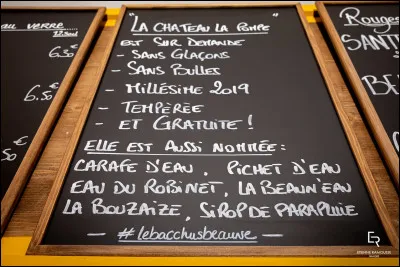 au verre
12.5cl
6.50
6.50
50
"LA CHATEAU LA POMPE"
EST SUR DEMANDE
- SANS GLAÇONS
- SANS BULLES
- MILLÉSIME 2019
- TEMPÉRÉE
- ET GRATUITE !
ELLE EST AUSSI NOMMÉE :
CARAFE D'EAU, PICHET D'EAU
EAU DU ROBINET, LA BEAUN'EAU
LA BOUZAIZE, SIROP DE PARAPLUIE
— #lebacchusbeaune —
Rouges
SANT
BEA
ER